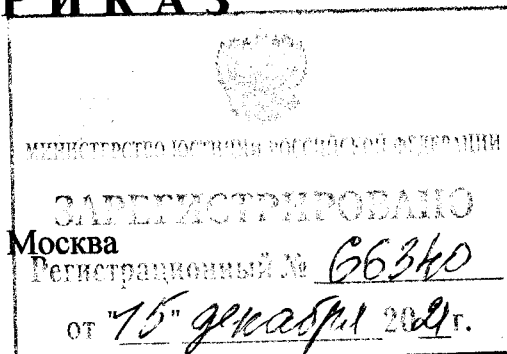 РИКАЗ
МИНИСТЕРСТВО ЮСТИЦИИ РОССИЙСКОЙ ФЕДЕРАЦИИ
ЗАРЕГИСТРИРОВАНО
Москва
Регистрационный № 66340
от "15" декабря 2021 г.